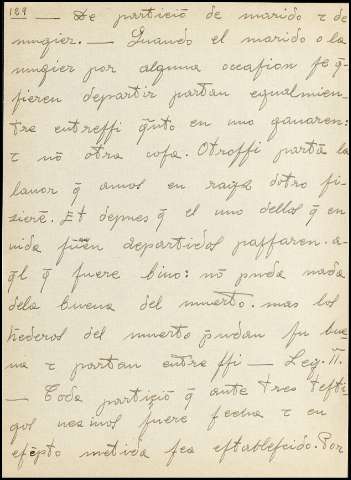 184 — De particiō de marido τ de
mugier. — Quando el marido o la
mugier por alguna occasion se q̄
sieren departir partan equalmien
tre entressi q̄nto en uno ganaren:
τ nō otra cosa. Otrossi partā la
lauor q̄ amos en rayz dotro fi
zierē. Et depues q̄ el uno dellos q̄ en
uida fuēn departidos passaren. a
q̄l q̄ fuere biuo: nō prēda nada
dela buena del muerto. mas los
hēderos del muerto p̄ndan su bue
na τ partan entre ssi — Ley. II.
— Toda particiō q̄ ante tres testi
gos ueziños fuere fecha τ en
esc̄pto metida sea establescido. Por